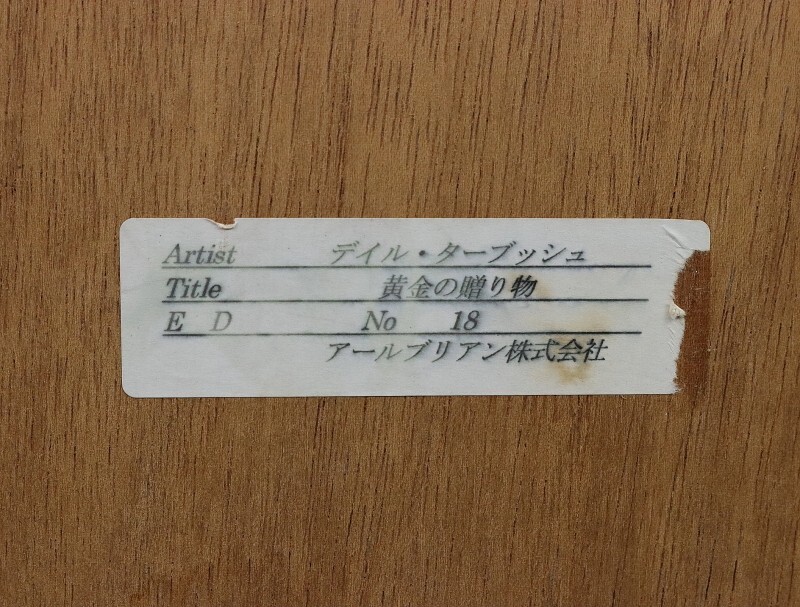 Artist デイル・ターブッシュ
Title 黄金の贈り物
E D No 18
アールブリアン株式会社